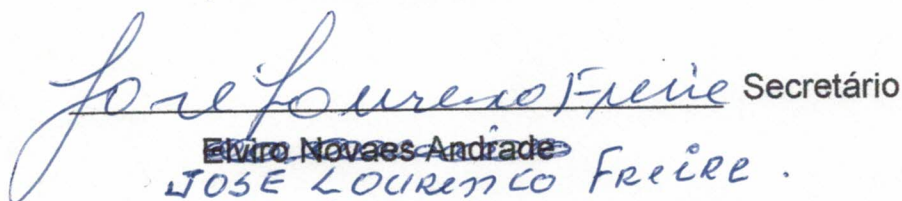 José Lourenço Freire Secretário
Elviro Novaes Andrade
JOSE LOURENCO FREIRE.